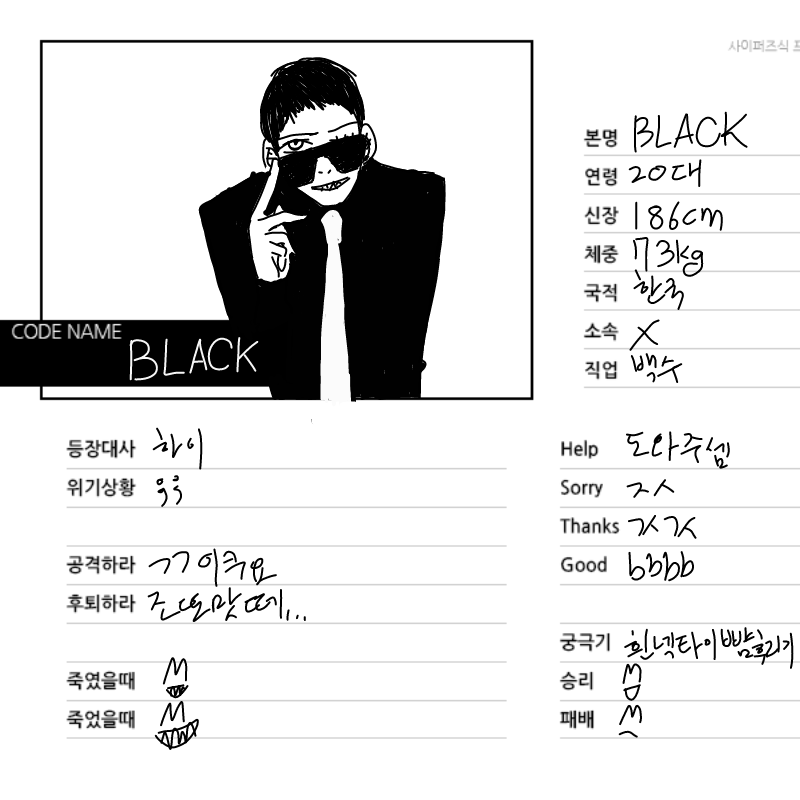 사이퍼즈식 프
본명 BLACK
연령 20대
신장 186cm
체중 73kg
국적 한국
소속 X
직업 백수
CODE NAME
BLACK
등장대사 하이
위기상황 ㅎㅎ
공격하라 ㄱㄱ이쿠요
후퇴하라 즌또맛떼...
죽였을때 M
죽었을때 M
Help 도와주셈
Sorry ㅈㅅ
Thanks ㄱㅅㄱㅅ
Good bbbb
궁극기 흰넥타이뺨후리기
승리 M
패배 M